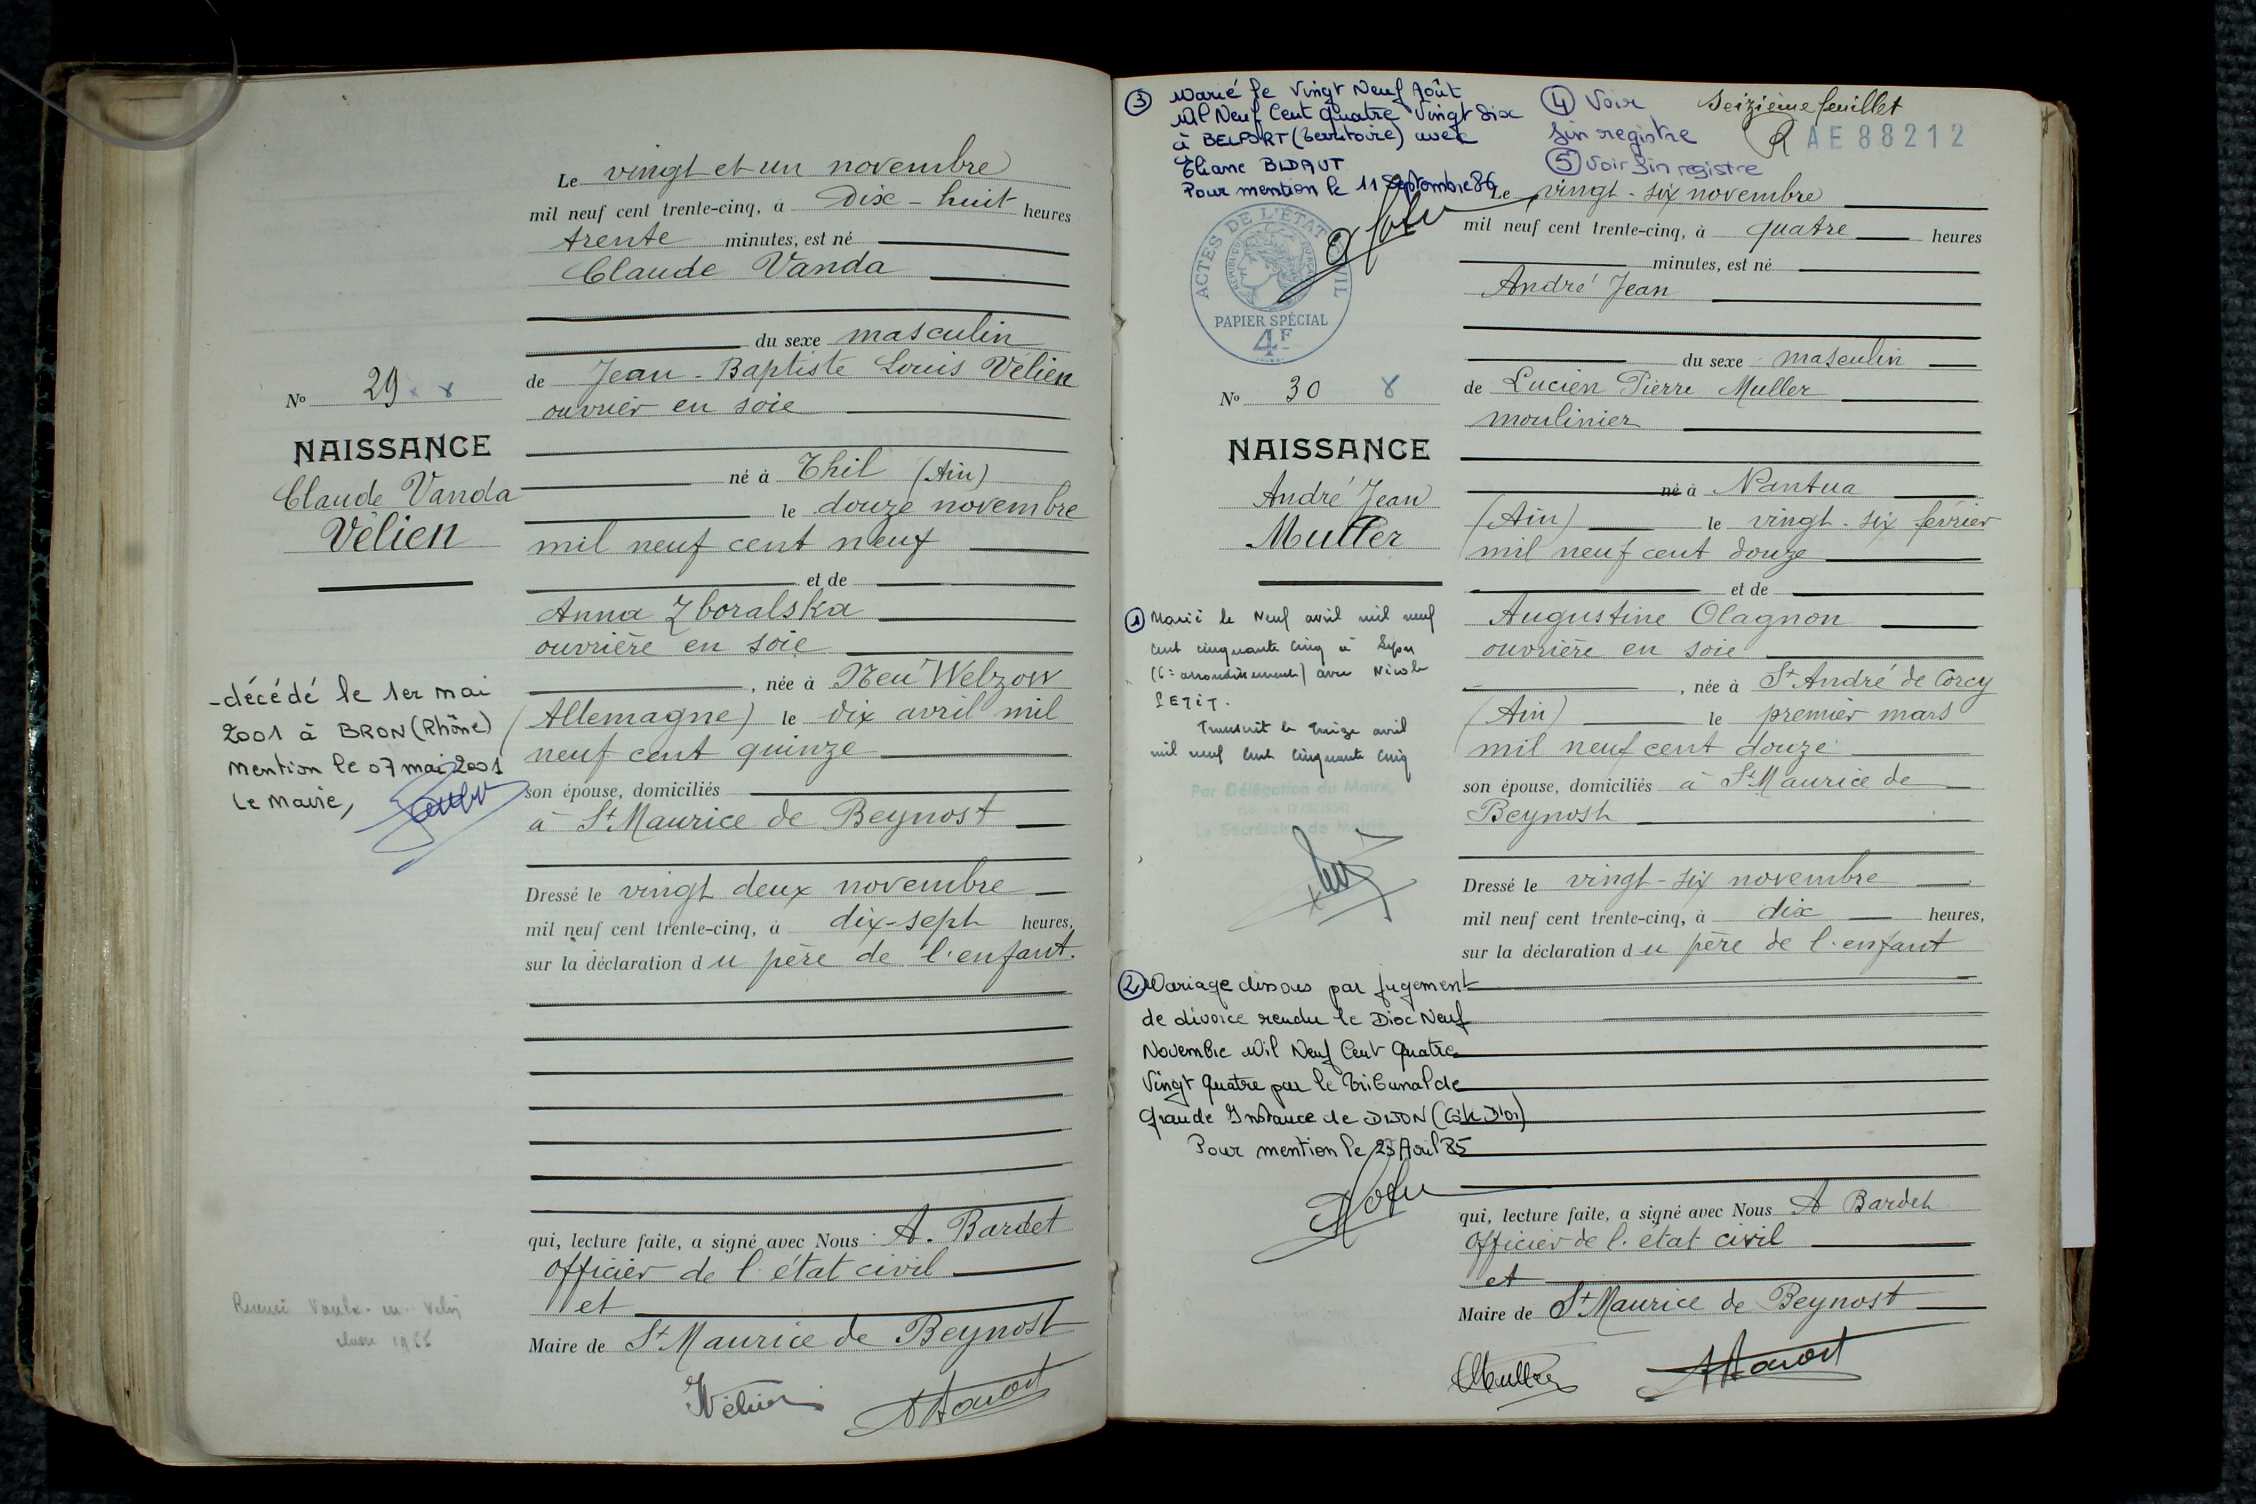 Le vingt et un novembre
mil neuf cent trente-cinq, à Dix-huit heures
trente minutes, est né
Claude Vanda
du sexe masculin
de Jean-Baptiste Louis Vélien
ouvrier en soie
né à Thil (Ain)
le douze novembre
mil neuf cent neuf
et de
Anna Zboralska
ouvrière en soie
, née à Neu Welzow
(Allemagne) le dix avril mil
neuf cent quinze
son épouse, domiciliés
à St Maurice de Beynost
Dressé le vingt deux novembre
mil neuf cent trente-cinq, à dix-sept heures,
sur la déclaration du père de l'enfant.
qui, lecture faite, a signé avec Nous A. Bardet
Officier de l'état civil
et
Maire de St Maurice de Beynost
No 29
NAISSANCE
Claude Vanda
Vélien
-décédé le 1er mai
2001 à BRON (Rhône)
Mention le 07 mai 2001
Le Maire,
Vélien
③ Marié le Vingt Neuf Août
Mil Neuf Cent Quatre Vingt Six
à BELFORT (Territoire) avec
Eliane BIDAUT
Pour mention le 11 Septembre 86
④ Voir
fin registre
⑤ Voir fin registre
Seizième feuillet
R AE 88212
ACTES DE L'ÉTAT CIVIL
PAPIER SPÉCIAL
4F
Le vingt-six novembre
mil neuf cent trente-cinq, à quatre heures
minutes, est né
André Jean
du sexe masculin
de Lucien Pierre Muller
moulinier
né à Nantua
(Ain) le vingt-six février
mil neuf cent douze
et de
Augustine Olagnon
ouvrière en soie
, née à St André de Corcy
(Ain) le premier mars
mil neuf cent douze
son épouse, domiciliés à St Maurice de
Beynost
Dressé le vingt-six novembre
mil neuf cent trente-cinq, à dix heures,
sur la déclaration du père de l'enfant
qui, lecture faite, a signé avec Nous A Bardet
Officier de l'état civil
et
Maire de St Maurice de Beynost
No 30
NAISSANCE
André Jean
Muller
① Marié le Neuf avril mil neuf
cent cinquante cinq à Lyon
(6e arrondissement) avec Nicole
PETIT.
Transcrit le treize avril
mil neuf cent cinquante cinq
Par Délégation du Maire,
Le Secrétaire de Mairie
② Mariage dissous par jugement
de divorce rendu le Dix Neuf
Novembre Mil Neuf Cent Quatre
Vingt Quatre par le Tribunal de
Grande Instance de DIJON (Côte D'Or)
Pour mention le 23 Août 85
Muller